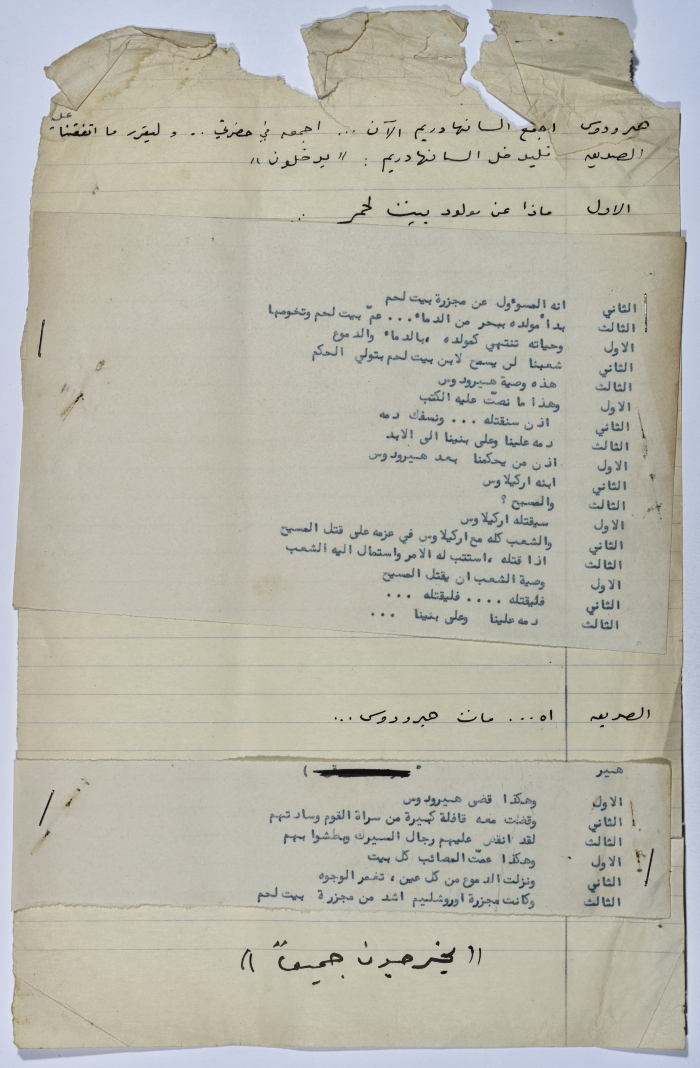 هيرودوس اجمع السانهادريم الآن ... اجمعه في حضرتي .. و ليقرر ما اتفقنا على
الصديقه فليدخل السانهادريم : "يدخلون"
الاول ماذا عن مولود بيت لحم ..
الثاني انه المسوءول عن مجزرة بيت لحم
الثالث بدأ مولده ببحر من الدماء ... عمّ بيت لحم وتخومها
الاول وحياته تنتهي كمولده ، بالدماء والدموع
الثاني شعبنا لن يسمح لابن بيت لحم بتولي الحكم
الثالث هذه وصية هيرودوس
الاول وهذا ما نصتّ عليه الكتب
الثاني اذن سنقتله ... ونسفك دمه
الثالث دمه علينا وعلى بنينا الى الابد
الاول اذن من يحكمنا بعد هيرودوس
الثاني ابنه اركيلاوس
الثالث والمسيح ؟
الاول سيقتله اركيلاوس
الثاني والشعب كله مع اركيلاوس في عزمه على قتل المسيح
الثالث اذا قتله ، استتب له الامر واستمال اليه الشعب
الاول وصية الشعب ان يقتل المسيح
الثاني فليقتله .... فليقتله ...
الثالث دمه علينا وعلى بنينا ...
الصديقه اه ... مات هيرودوس ...
هير
الاول وهكذا قضى هيرودوس
الثاني وقضت معه قافلة كبيرة من سراة القوم وسادتهم
الثالث لقد انقض عليهم رجال السيرك وبطشوا بهم
الاول وهكذا عمّت المصائب كل بيت
الثاني ونزلت الدموع من كل عين ، تغمر الوجوه
الثالث وكانت مجزرة اوروشليم اشد من مجزرة بيت لحم
"يخرجون جميعاً"